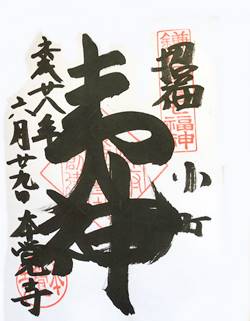 鎌倉七福神
招福
小町
夷神
平成廿八年
六月廿九日
本覚寺